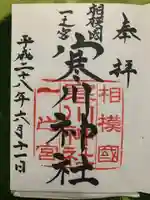 奉拝
相模國
一之宮
寒川神社
平成二十八年六月十一日
相模國
一之宮